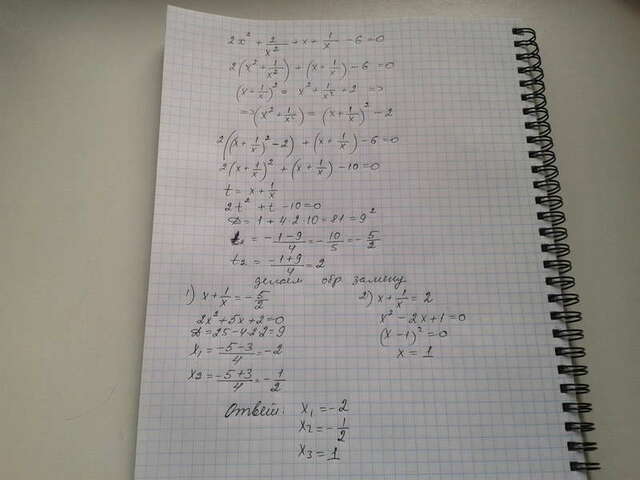 2x² + 2/x² + x + 1/x - 6 = 0
2(x² + 1/x²) + (x + 1/x) - 6 = 0
(x + 1/x)² = x² + 1/x² + 2 =>
=> (x² + 1/x²) = (x + 1/x)² - 2
2((x + 1/x)² - 2) + (x + 1/x) - 6 = 0
2(x + 1/x)² + (x + 1/x) - 10 = 0
t = x + 1/x
2t² + t - 10 = 0
D = 1 + 4·2·10 = 81 = 9²
t₁ = (-1-9)/4 = -10/5 = -5/2
t₂ = (-1+9)/4 = 2
делаем обр замену
1) x + 1/x = -5/2
2x² + 5x + 2 = 0
D = 25 - 4·2·2 = 9
x₁ = (-5-3)/4 = -2
x₂ = (-5+3)/4 = -1/2
2) x + 1/x = 2
x² - 2x + 1 = 0
(x - 1)² = 0
x = 1
Ответ: x₁ = -2
x₂ = -1/2
x₃ = 1